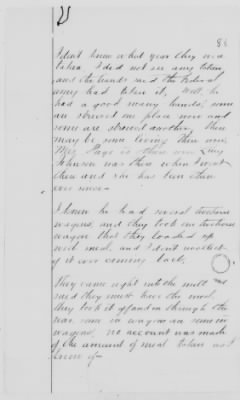 88
I didn't know what year they was
taken I did not see any taken
and the hands said the Federal
army had taken it. Well, he
had a good many hands; some
are around one place now and
some are around another, there
may be some living there now,
Mrs. Page is there now
Johnson was there when I went
there and she has been there
ever since.
I know he had several two horse
wagons, and they took in two horse
wagons that they loaded up
with meal, and I don't recollect
of it ever coming back.
They came right into the mill and
said they must have the meal,
they took it off and in through the
rear, some in wagons
wagons, no account was made
of the amount of meal taken as I
know of